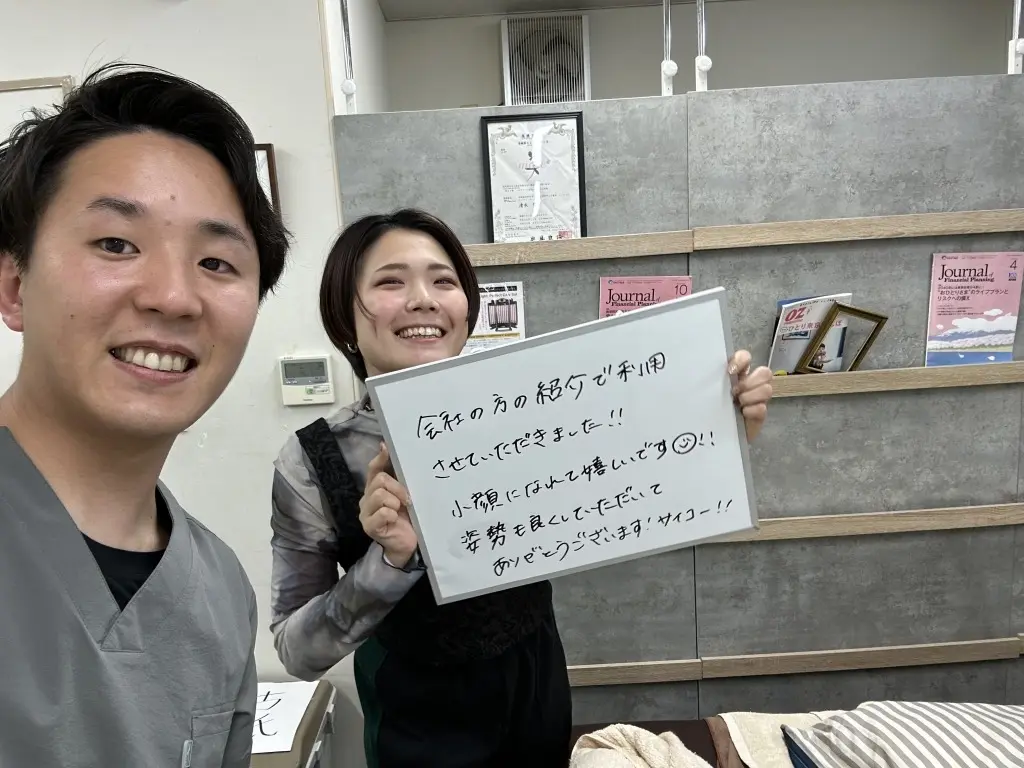 会社の方の紹介で利用
させていただきました!!
小顔になれて嬉しいです☺!!
姿勢も良くしていただいて
ありがとうございます!サイコー!!
Journal of
Financial Planning
10
OZ
Journal of
Financial Planning
4
"おひとりさま"のライフプランと
リスクへの備え